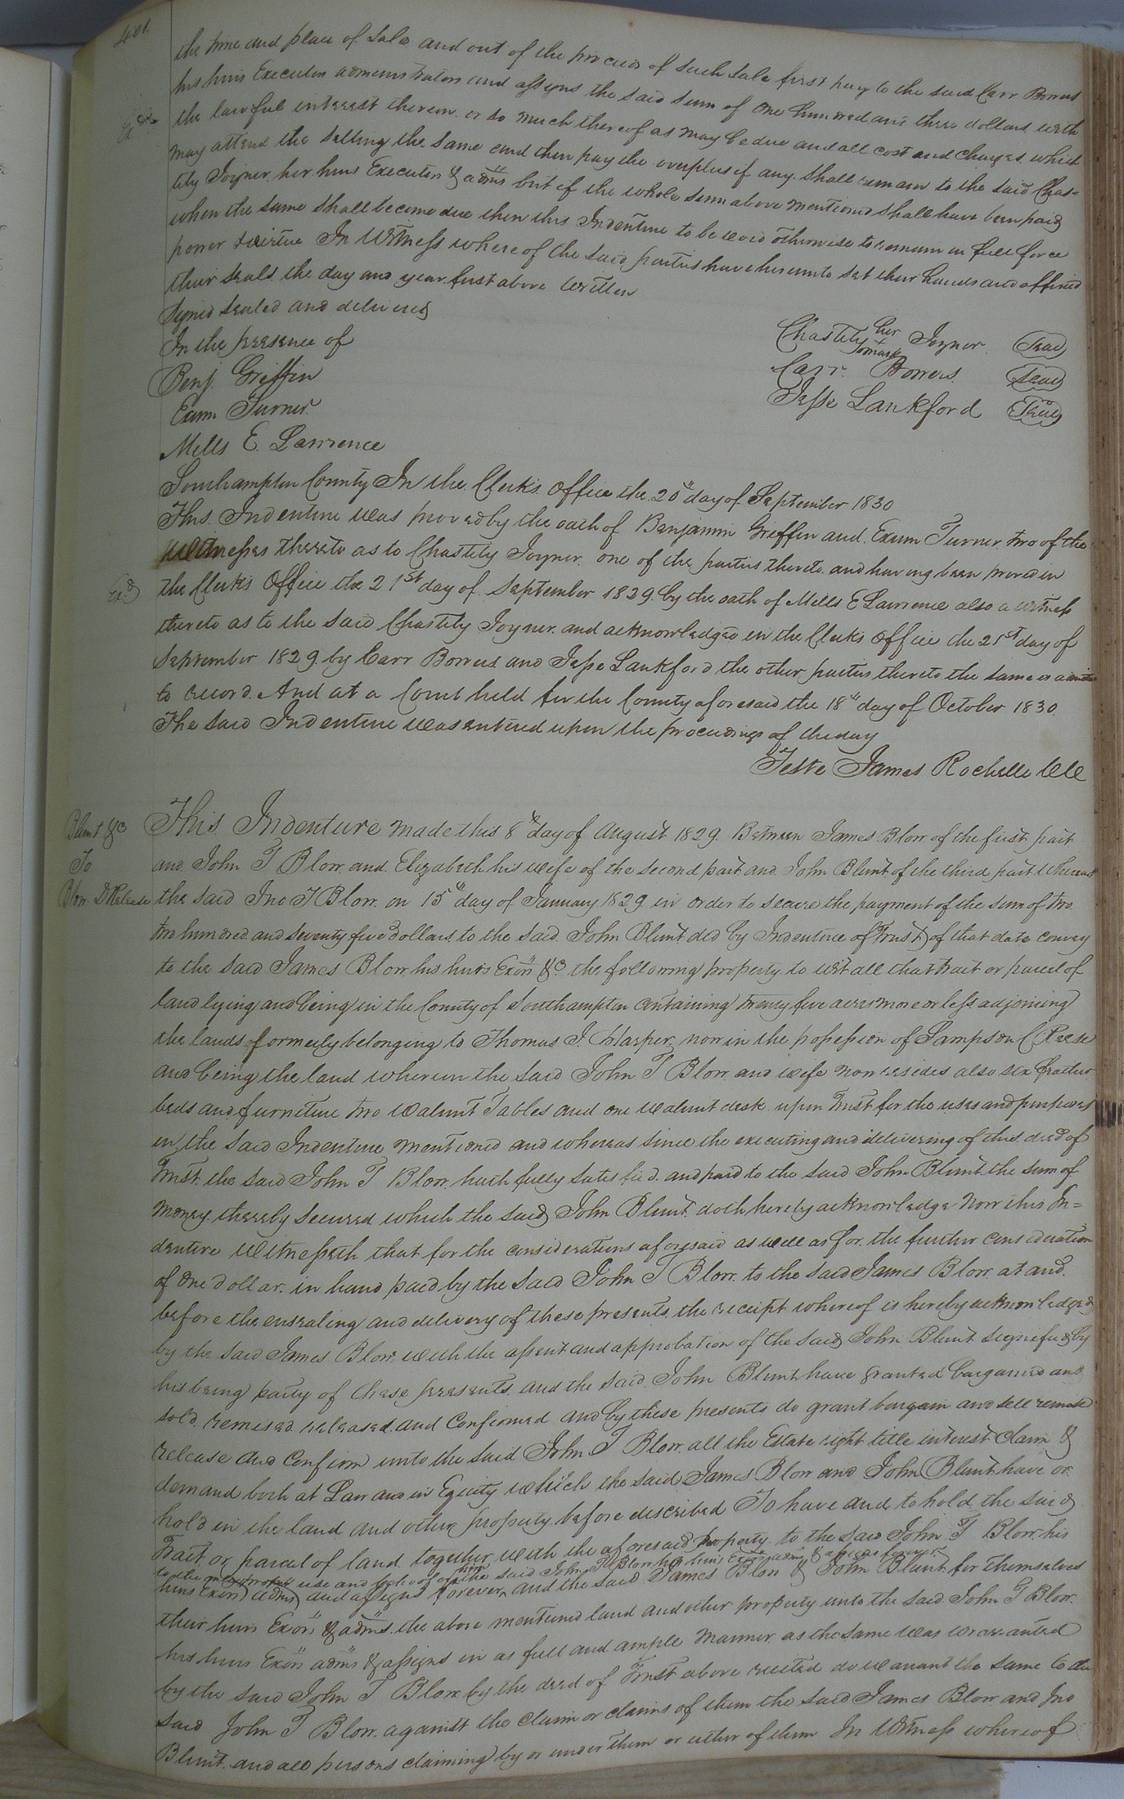 401
the time and place of Sale and out of the proceeds of such Sale first pay to the said Carr Bowers
his heirs Executors administrators and assigns the said Sum of One hundred and three dollars with
the lawful interest thereon or so much thereof as may be due and all cost and charges which
may attend the selling the same and then pay the overplus if any shall remain to the said Chas-
tity Joyner her heirs Executors & adms but if the whole sum above mentioned shall have been paid
when the same shall become due then this Indenture to be void otherwise to remain in full force
power & virtue In Witness whereof the said parties have hereunto set their hands and affixed
their seals the day and year first above written
Signed Sealed and delivered
In the presence of
Benj. Griffin
Exum Turner
Mills E. Lawrence
Chastity her mark Joyner Seal
Carr Bowers Seal
Jesse Lankford Seal
Southampton County In the Clerks Office the 20th day of September 1830
This Indenture was proved by the oath of Benjamin Griffin and Exum Turner two of the
witnesses thereto as to Chastity Joyner one of the parties thereto and having been proved in
Exd the Clerks Office the 21st day of September 1829 by the oath of Mills E Lawrence also a witness
thereto as to the said Chastity Joyner and acknowledged in the Clerks Office the 21st day of
September 1829 by Carr Bowers and Jesse Lankford the other parties thereto the same is admitted
to record. And at a Court held for the County aforesaid the 18th day of October 1830
The said Indenture was entered upon the proceedings of the day
Teste James Rochelle
Blunt &c
To
Blow D Release
This Indenture made this 8th day of August 1829 Between James Blow of the first part
and John T Blow and Elizabeth his wife of the second part and John Blunt of the third part whereas
the said Jno T Blow on 15th day of January 1829 in order to secure the payment of the sum of two
two hundred and seventy five dollars to the said John Blunt did by Indenture of Trust of that date convey
to the said James Blow his heirs Exors &c the following property to wit all that tract or parcel of
land lying and being in the County of Southampton containing twenty five acres more or less adjoining
the lands formerly belonging to Thomas J. Harper now in the possession of Sampson C Reese
and being the land whereon the said John T Blow and wife now resides also six feather
beds and furniture two walnut Tables and one walnut desk upon Trust for the uses and purposes
in the said Indenture mentioned and whereas since the executing and delivering of this deed of
Trust the said John T Blow hath fully satisfied and paid to the said John Blunt the sum of
money thereby secured which the said John Blunt doth hereby acknowledge Now this In=
denture Witnesseth that for the considerations aforesaid as well as for the further consideration
of One dollar in hand paid by the said John T Blow to the said James Blow at and
before the ensealing and delivery of these presents the receipt whereof is hereby acknowledged
by the said James Blow with the assent and approbation of the said John Blunt signified by
his being party of these presents and the said John Blunt have granted bargained and
sold remised released and Confirmed and by these presents do grant bargain and sell remise
release and Confirm unto the said John T Blow all the Estate right title interest claim &
demand both at Law and in Equity which the said James Blow and John Blunt have or
hold in the land and other property before described To have and to hold the said
Tract or parcel of land together with the aforesaid property to the said John T Blow his
to the only proper use and behoof of him the said John T Blow his heirs Exors adms & assigns forever
heirs Exors adms and assigns forever and the said James Blow & John Blunt for themselves
their heirs Exors & adms the above mentioned land and other property unto the said John T Blow
his heirs Exors adms & assigns in as full and ample manner as the same was warranted
by the said John T Blow by the deed of Trust above recited do warrant the same to the
said John T Blow against the claim or claims of them the said James Blow and Jno
Blunt and all persons claiming by or under them or either of them In Witness whereof